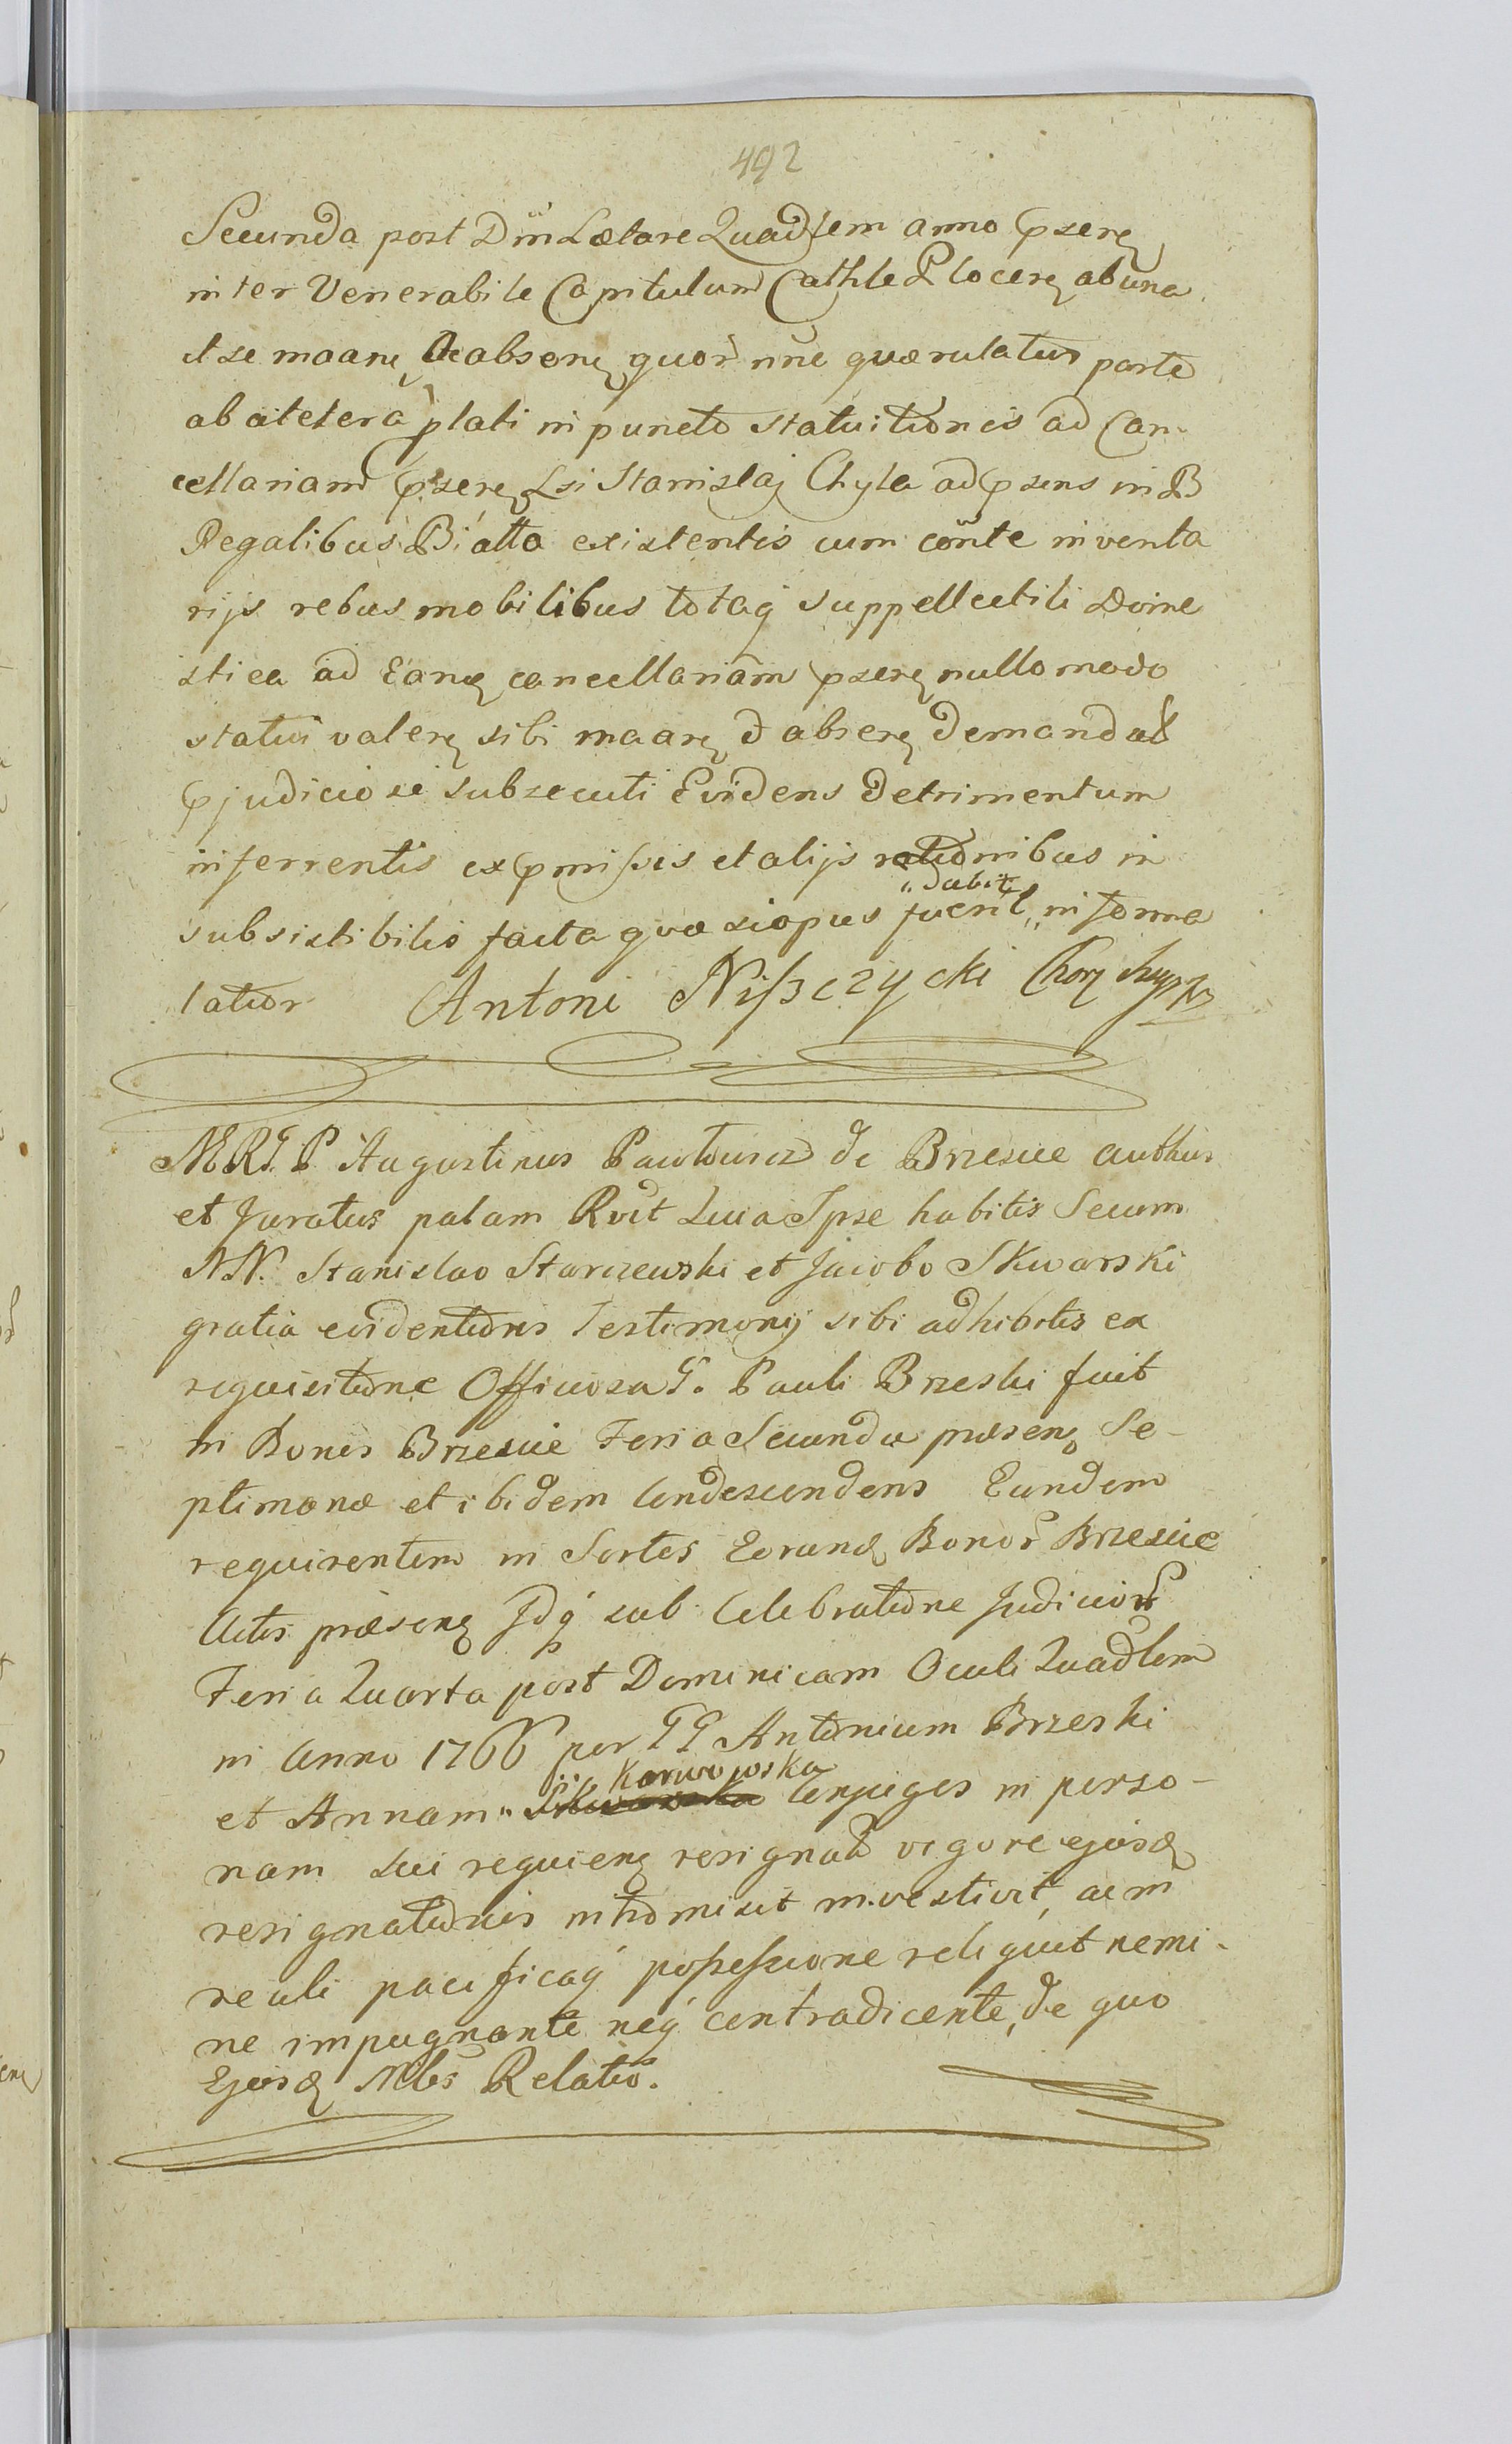 492
Secunda post Dm̃ Lætare Quadlem anno pseñ
inter Venerabile Capitulum Cathle Plocen ab una
et se maañ ac absenę quor nñe quærulatur parte
ab altera plati in puncto statuitionis ad Can-
cellariam pseñ Lsi Stanislaj Chyla ad psens in B
Regalibus Biatta existentis cum cõnte inventa
rijs rebus mobilibus totaq suppellectili Dome
stica ad Eanę cancellariam pseñ nullo modo
statui valeñ sibi maañ d absenę demandat
pjudicio se subsecuti Evidens Detrimentum
inferrentis ex pmissis et alijs rationibus in
subsistibilis facta quæ si opus fuerit „dabit„ in forma
latior Antoni Niszczycki Chorż
MRGP Augustinus Pawłowicz de Brzescie authus
et Juratus palam Rvit Quia Ipse habitis Secum
NN. Stanislao Starczewski et Jacobo Skwarski
gratia evidentioris Testimonij sibi adhibitis ex
requisitione Officiosa G. Pauli Brzeski fuit
in Bonis Brzescie Feria Secunda præsenę Se-
ptimanæ et ibidem Condescendens Eundem
requirentem in Sortes Eorundę Bonor Brzescie
Actis præsenę Idq sub Celebratione Judicior
Feria Quarta post Dominicam Oculi Quadlem
in Anno 1766 per GG Antonium Brzeski
et Annam „ Karwowska Conjuges in perso-
nam sui requienę resignat vigore ejusdę
resignationis intromisit investivit, acin
reali pacificaq possessione reliquit nemi-
ne impugnante neq contradicente, de quo
Ejusdę Mlis Relatio.